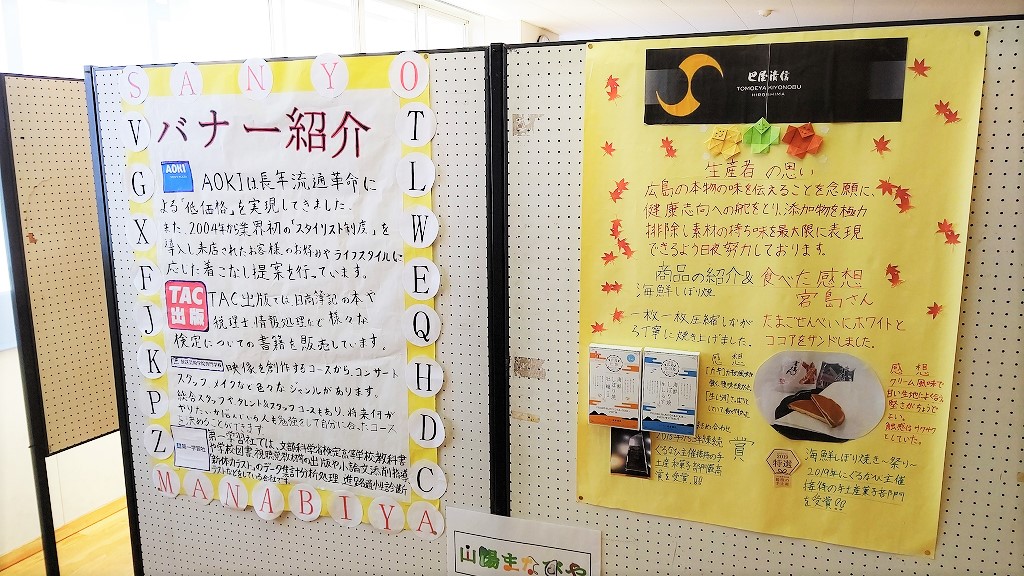 SANYO
VGXFJKPZ
TLWEQHDC
MANABIYA
バナー紹介
AOKI
AOKIは長年流通革命に
よる「低価格」を実現してきました。
また、2004年から業界初の「スタイリスト制度」を
導入し来店されたお客様のお好みやライフスタイルに
応じた着こなし提案を行っています。
TAC
出版
TAC出版では日商簿記の本や
税理士、情報処理など様々な
検定についての書籍を販売しています。
映像を創作するコースから、コンサート
スタッフ、メイクなど色々なジャンルがあります。
総合スタッフやタレント&スタッフコースもあり、将来何が
やりたいか悩んでいる人も勉強をして自分に合ったコース
を決めることができます。
第一学習社
第一学習社では、文部科学省検定済学校教科書
や学校図書、視聴覚教材等の出版や小論文添削指導
山陽まなびや
巴屋清信
TOMOEYA KIYONOBU
HIROSHIMA
生産者の思い
広島の本物の味を伝えることを念願に、
健康志向への舵をとり、添加物を極力
排除し素材の持ち味を最大限に表現
できるよう日夜努力しております。
商品の紹介&食べた感想
海鮮しぼり焼
一枚一枚圧縮しなが
ら丁寧に焼き上げました。
宮島さん
たまごせんべいにホワイトと
ココアをサンドしました。
感想
感想
クリーム風味で
甘い生地によくあう
堅さがちょうど
よい。
触感はサクサク
としていた。
賞
を受賞!!
2019
特選
海鮮しぼり焼き~祭り~
2019年にぐるなび主催
接待の手土産菓子部門
を受賞!!